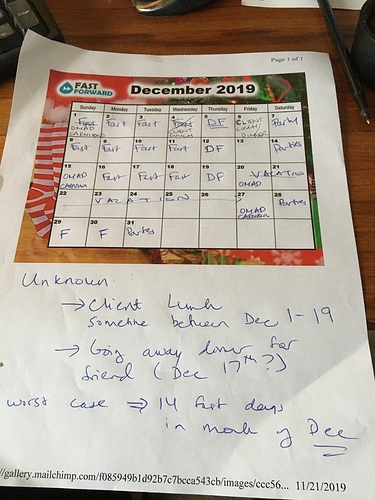 Page 1 of 1
FAST FORWARD December 2019
Sunday Monday Tuesday Wednesday Thursday Friday Saturday
1 2 3 4 5 6 7
Fast Fast Fast DF CLIENT Party
OMAD CLIENT LUNCH DINNER
CARNIVORE
8 9 10 11 12 13 14
Fast Fast Fast Fast DF Parties
15 16 17 18 19 20 21
OMAD Fast Fast Fast DF VACATION
CARNIVORE OMAD
22 23 24 25 26 27 28
VACATION OMAD Parties
CARNIVORE
29 30 31
F F Parties
Unknown
→ Client Lunch
sometime between Dec 1-19
→ Going away dinner for
friend (Dec 17th?)
worst case ⇒ 14 fast days
in month of Dec
//gallery.mailchimp.com/f085949b1d92b7c7bcca543cb/images/ccc56... 11/21/2019